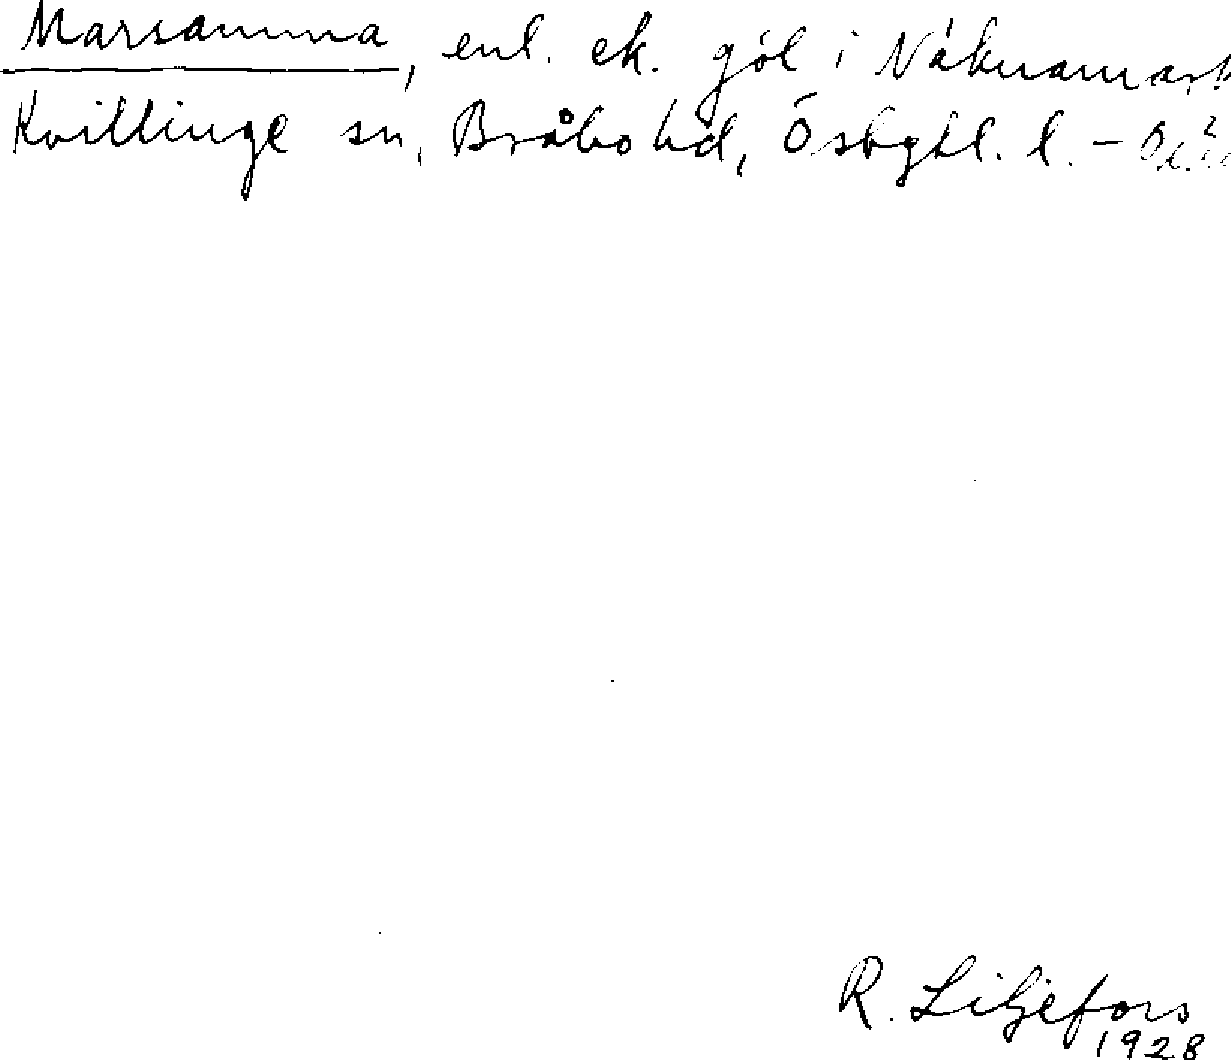 Marsamma, enl. ek. göl i Näknamark
Kvillinge sn, Bråbo hd, Östgtl. l. –
R. Liljefors
1928